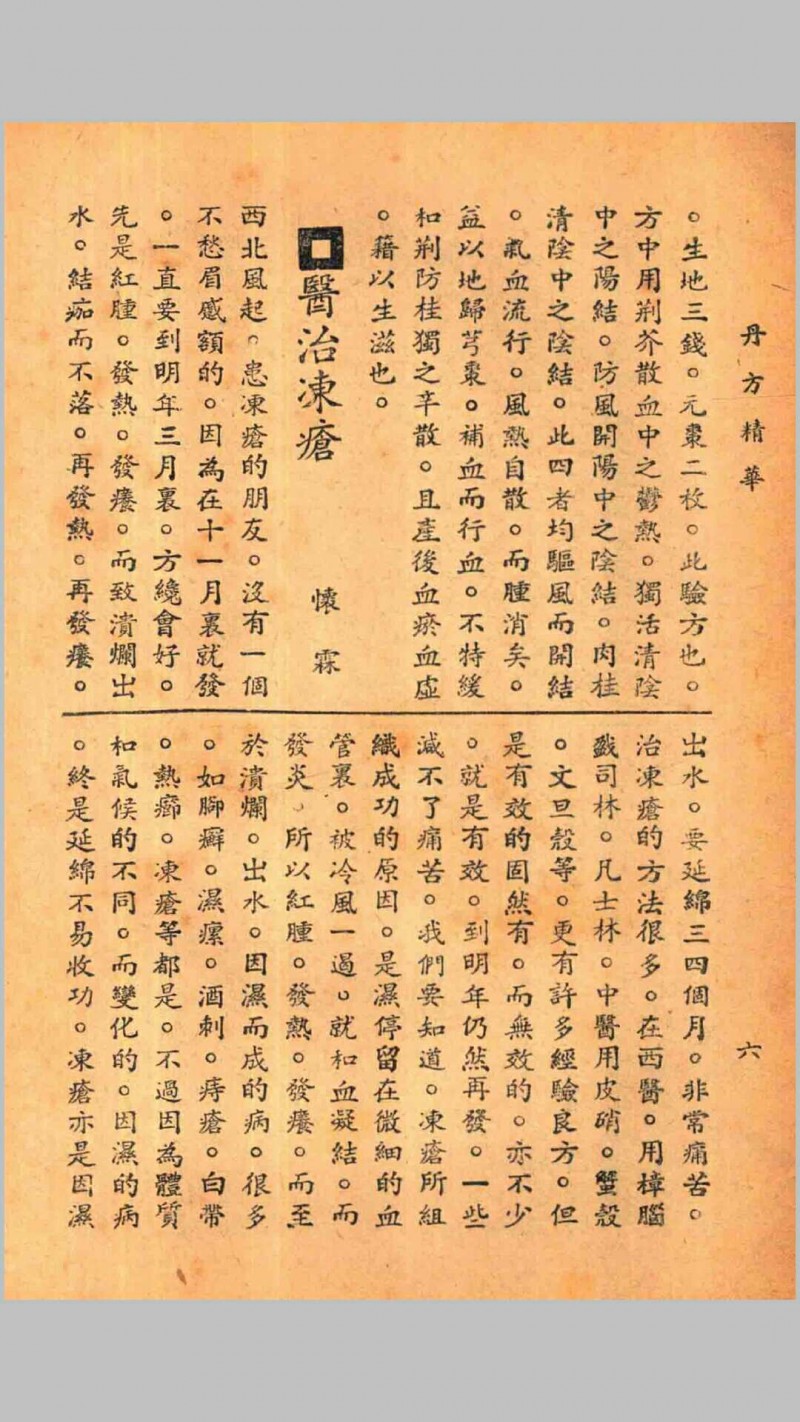 丹方精華
六
。生地三錢。元棗二枚。此驗方也。
方中用荆芥散血中之鬱熱。獨活清陰
中之陽結。防風開陽中之陰結。肉桂
清陰中之陰結。此四者均驅風而開結
。氣血流行。風熱自散。而腫消矣。
益以地歸芎棗。補血而行血。不特緩
和荆防桂獨之辛散。且產後血瘀血虛
。藉以生滋也。
醫治凍瘡
懷霖
西北風起。患凍瘡的朋友。沒有一個
不愁眉蹙額的。因為在十一月裏就發
。一直要到明年三月裏。方纔會好。
先是紅腫。發熱。發癢。而致潰爛出
水。結痂而不落。再發熱。再發癢。
出水。要延綿三四個月。非常痛苦。
治凍瘡的方法很多。在西醫。用樟腦
戤司林。凡士林。中醫用皮硝。蟹殼
。文旦殼等。更有許多經驗良方。但
是有效的固然有。而無效的。亦不少
。就是有效。到明年仍然再發。一些
減不了痛苦。我們要知道。凍瘡所組
織成功的原因。是濕停留在微細的血
管裏。被冷風一過。就和血凝結。而
發炎。所以紅腫。發熱。發癢。而至
於潰爛。出水。因濕而成的病。很多
。如脚癬。濕瘰。酒刺。痔瘡。白帶
。熱癤。凍瘡等都是。不過因為體質
和氣侯的不同。而變化的。因濕的病
。終是延綿不易收功。凍瘡亦是因濕